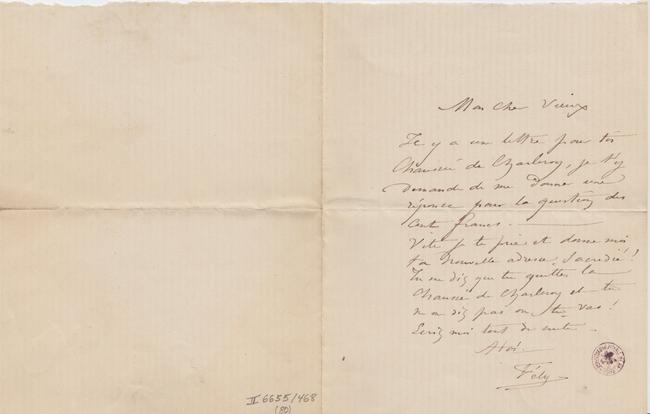 Mon cher Vieux
Il y a une lettre pour toi
Chaussée de Charleroy, je t'y
demande de me donner une
réponse pour la question des
cent francs.
Vite je te prie et donne moi
ta nouvelle adresse, Sacredié!
Tu me dis que tu quittes la
Chaussée de Charleroy et tu
ne dis pas où tu vas!
Ecris moi tout de suite.
A toi
Fély
II 6655/468
(80)